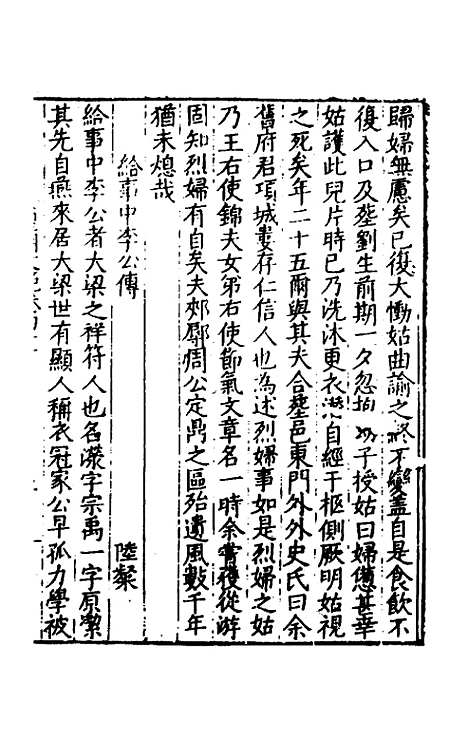 歸婦無慮矣已復大慟姑曲諭之終不變蓋自是食飲不
復入口及塟劉生前期一夕忽抱幼子授姑曰婦憊甚幸
姑護此兒片時已乃洗沐更衣潛自經于柩側厥明姑視
之死矣年二十五爾與其夫合塟邑東門外外史氏曰余
舊府君項城婁存仁信人也為述烈婦事如是烈婦之姑
乃王右使錦夫女弟右使節氣文章名一時余嘗獲從游
固知烈婦有自矣夫郟鄏周公定鼎之區殆遺風數千年
猶未熄哉
給事中李公傳
陸粲
給事中李公者大梁之祥符人也名濚字宗禹一字原潔
其先自燕來居大梁世有顯人稱衣冠家公早孤力學被